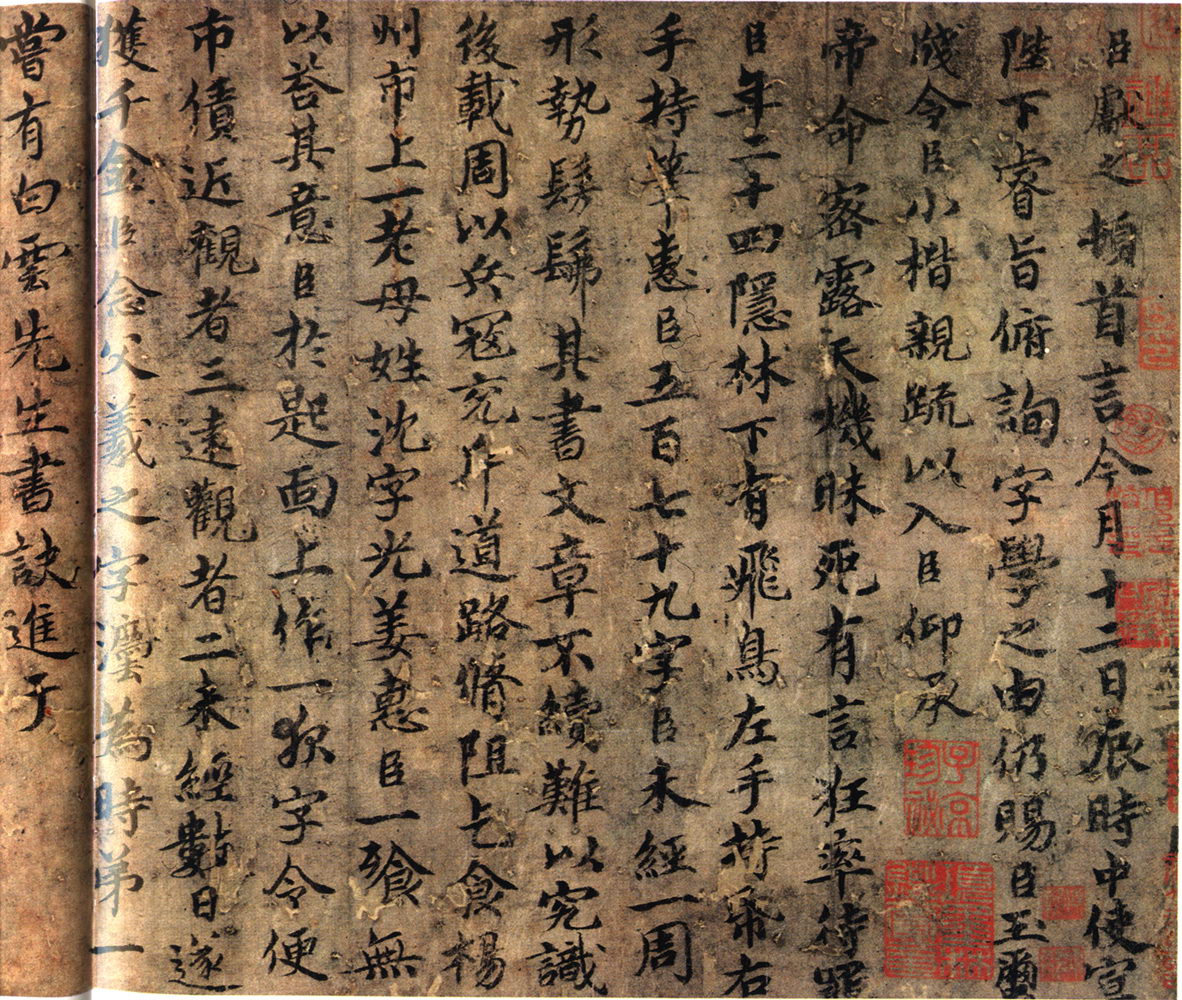 臣獻之頓首言今月十二日辰時中使宣
陛下睿旨俯詢字學之由仍賜臣玉璽
牋令臣小楷親疏以入臣仰承
帝命密露天機昧死有言狂率待罪
臣年二十四隱林下有飛鳥左手持帋右
手持筆惠臣五百七十九字臣未經一周
形勢髣髴其書文章不續難以究識
後載周以兵寇充斥道路脩阻乞食楊
州市上一老母姓沈字光姜惠臣一飱無
以荅其意臣於匙面上作一夜字令便
市債近觀者三遠觀者二未經數日遂
獲千金臣念父羲之字灋為時弟一
嘗有白雲先生書訣進于